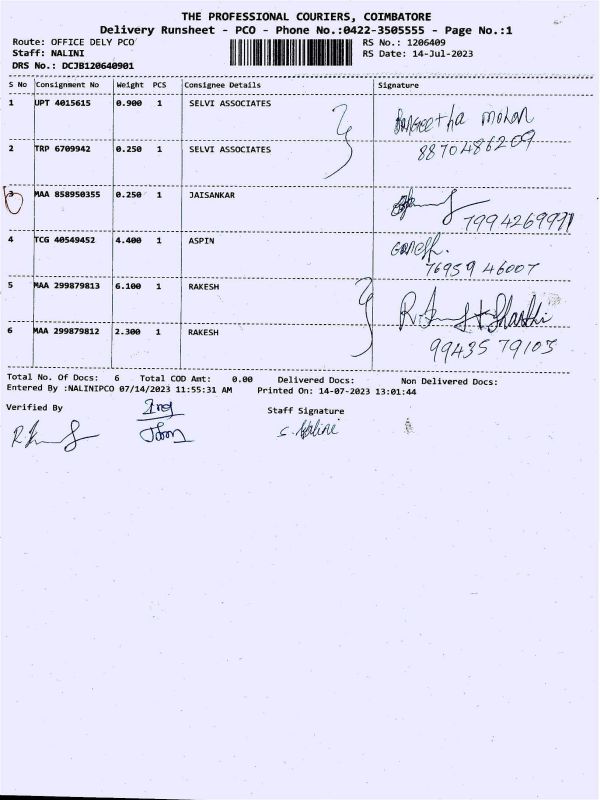 THE PROFESSIONAL COURIERS, COIMBATORE
Delivery Runsheet - PCO - Phone No.:0422-3505555 - Page No.:1
Route: OFFICE DELY PCO
RS No.: 1206409
Staff: NALINI
RS Date: 14-Jul-2023
DRS No.: DCJB120640901
S No Consignment No Weight PCS Consignee Details Signature
1 UPT 4015615 0.900 1 SELVI ASSOCIATES
Sangeetha mohan
2 TRP 6709942 0.250 1 SELVI ASSOCIATES
8870486209
3 MAA 858950355 0.250 1 JAISANKAR
4 TCG 40549452 4.400 1 ASPIN
Ganesh.
76959 46007
5 MAA 299879813 6.100 1 RAKESH
6 MAA 299879812 2.300 1 RAKESH
99435 79105
Total No. Of Docs: 6 Total COD Amt: 0.00 Delivered Docs: Non Delivered Docs:
Entered By :NALINIPCO 07/14/2023 11:55:31 AM Printed On: 14-07-2023 13:01:44
Verified By
Staff Signature
S. Nalini